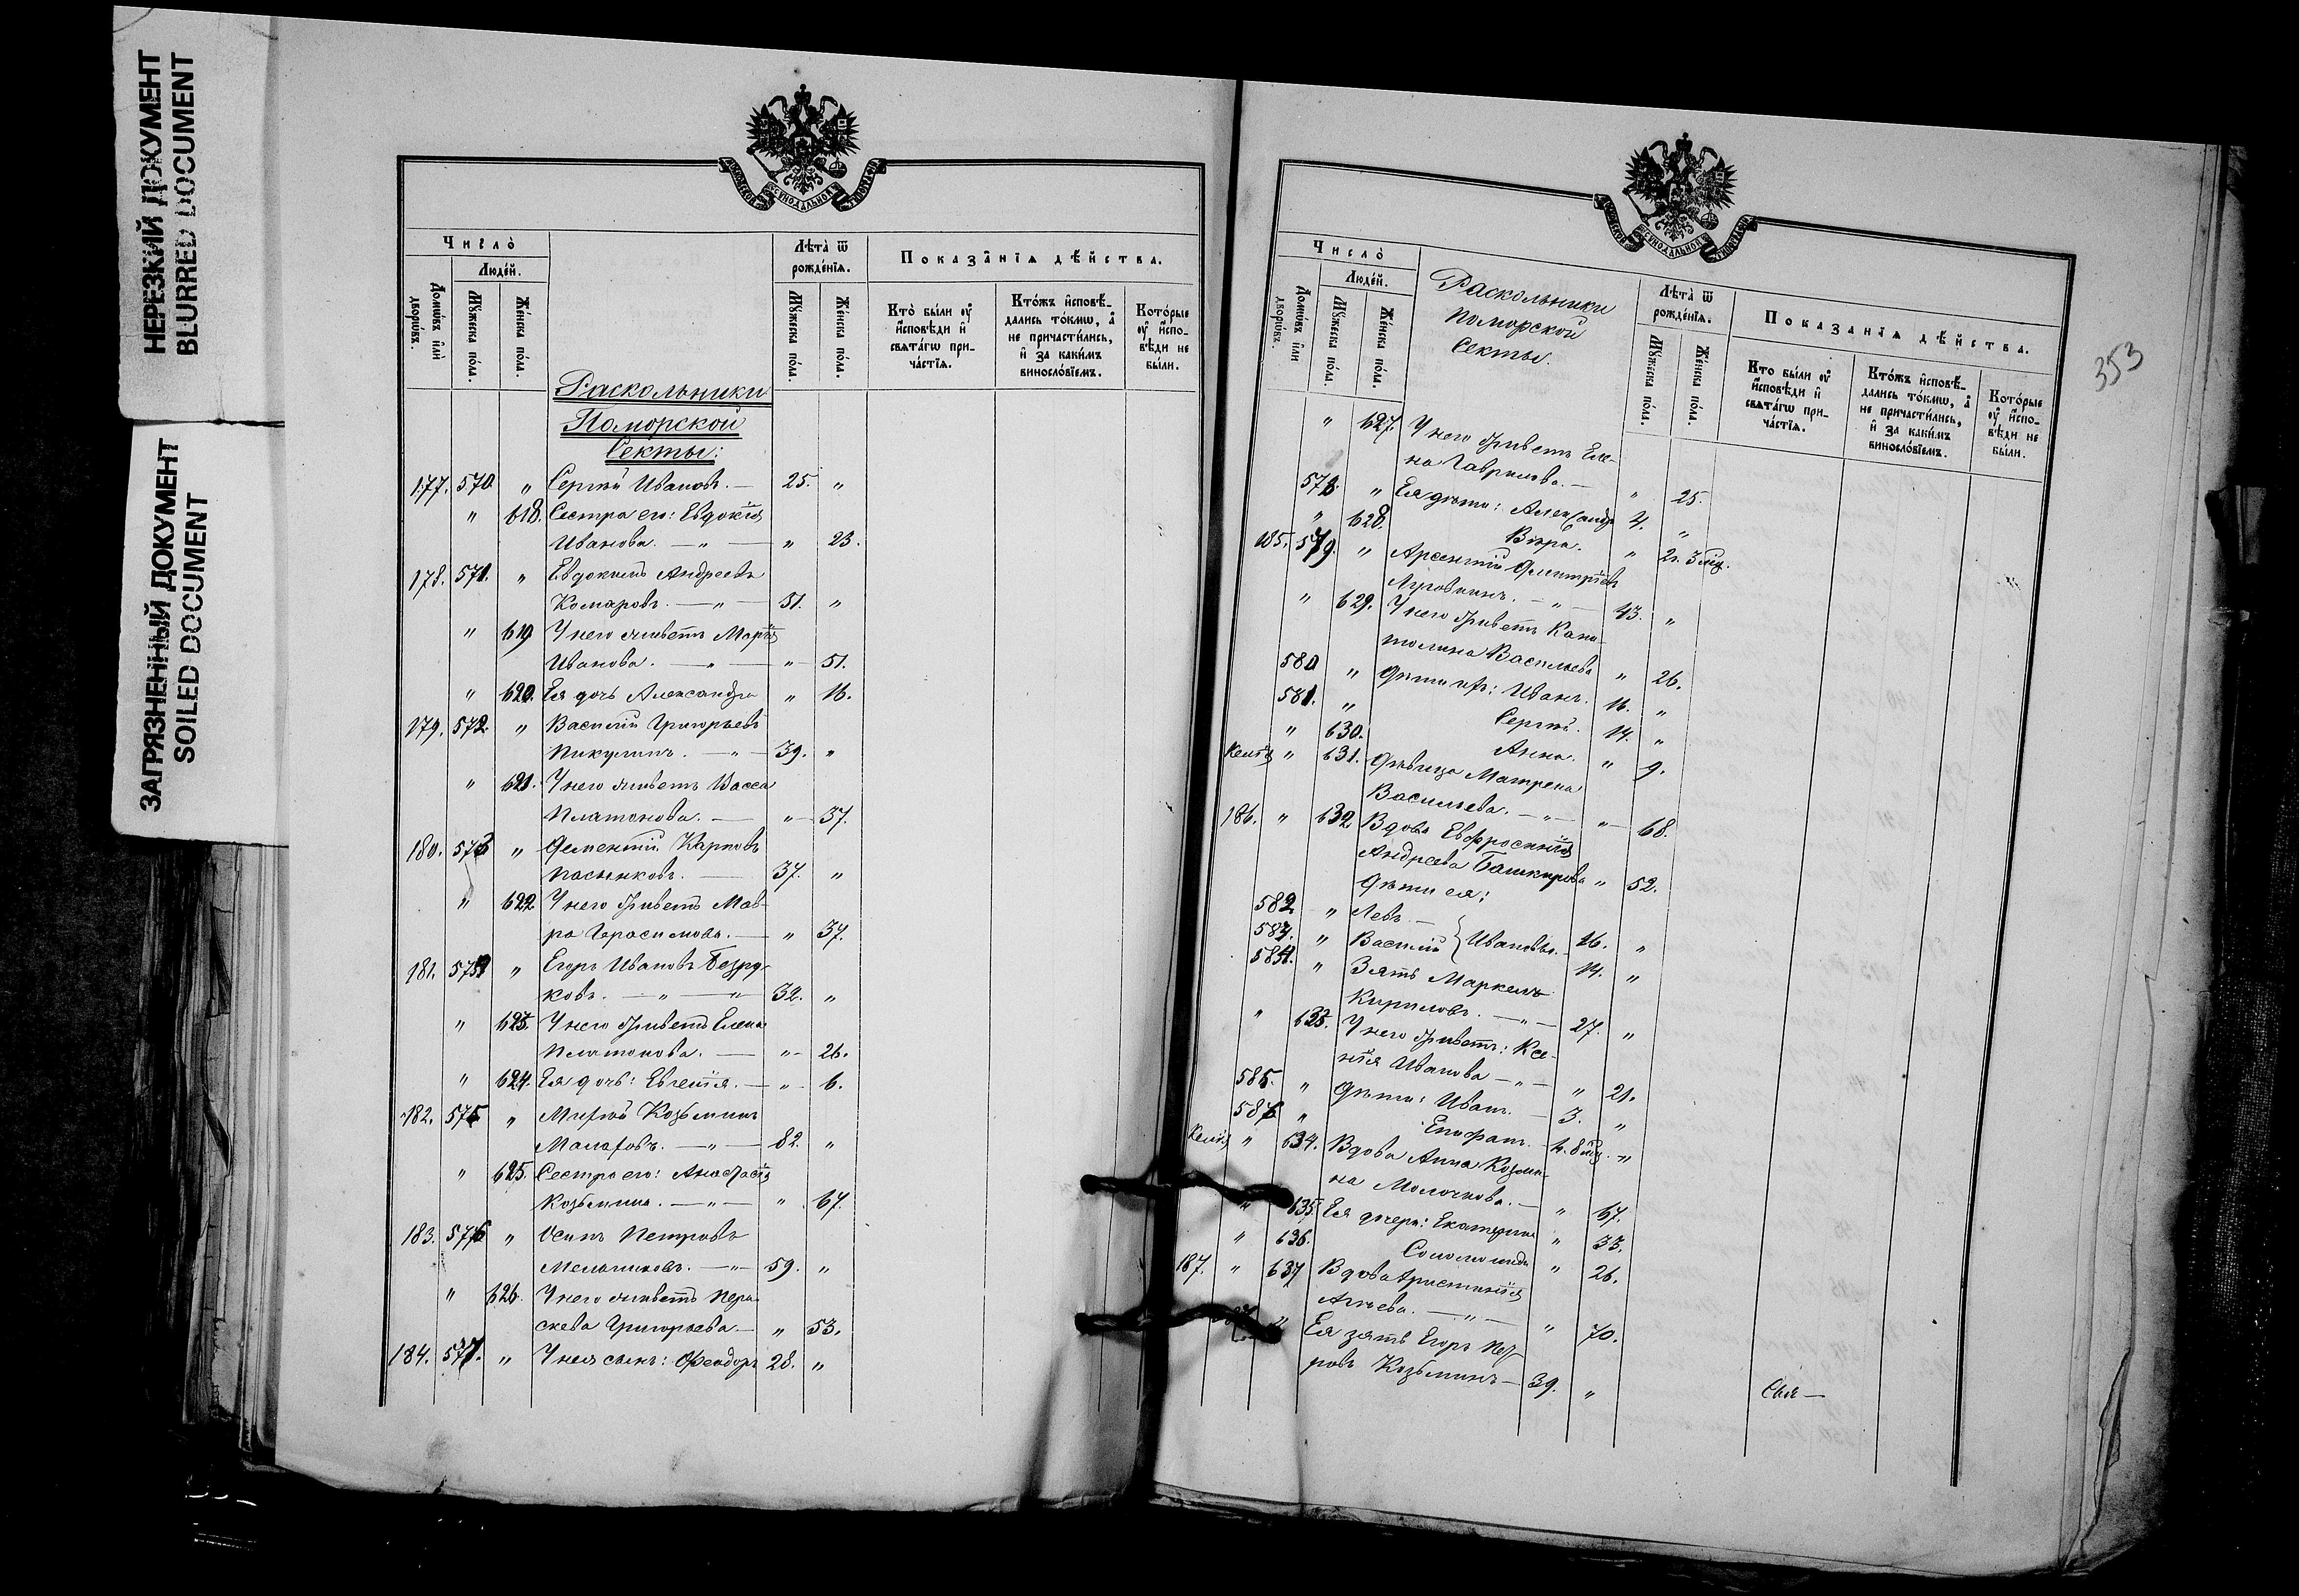 НЕРЕЗКИЙ ДОКУМЕНТ
BLURRED DOCUMENT
ЗАГРЯЗНЕННЫЙ ДОКУМЕНТ
SOILED DOCUMENT
МОСКОВСКОЙ СѴНОДАЛЬНОЙ ТИПОГРАФІИ
Число̀
Люде́й.
Домѡ́въ и҆лѝ дворѡ́въ.
Мꙋ́жеска по́ла.
Же́нска по́ла.
Лѣ́та ѿ рожде́нїѧ.
Мꙋ́жеска по́ла.
Же́нска по́ла.
Показа̑нїѧ дѣ́йства.
Кто̀ бы́ли оу҆ и҆сповѣ́ди и҆ свѧта́гѡ прича́стїѧ.
Кто́жъ и҆сповѣ́дались то́кмѡ, а҆ не причасти́лись, и҆ за каки́мъ винословїемъ.
Кото́рые оу҆ и҆сповѣ́ди не бы́ли.
Раскольники
Поморской
Секты:
177. 570. " Сергѣй Ивановъ. — 25. "
" 618. Сестра его: Евдокія
Иванова. — " — " 23.
178. 571. " Евдокимъ Андреевъ
Комаровъ. — " — 51. "
" 619 У него живетъ Марія
Иванова. — " — " 51.
" 620. Ея дочь Александра " 16.
179. 572. " Василій Григорьевъ
Пикулинъ. — " — 39. "
" 621. У него живетъ Васса
Платонова. — " 37.
180. 573 " Дементій Карповъ
Пасынковъ. — 37. "
" 622 У него живетъ Мав-
ра Герасимова. — " 37.
181. 574 " Егоръ Ивановъ Безру-
ковъ. — " — " 32. "
" 623. У него живетъ Елена
Платонова. — " 26.
" 624. Ея дочь: Евгенія. — " 6.
182. 575 " Козьминъ
82. "
" 625. Сестра его: Анастасія
Козьмина. — " — " 67.
183. 576 " Осипъ Петровъ
Мельниковъ. — " — 59. "
" 626. У него живетъ Пара-
скева Григорьева. — " 53.
184. 577. " У нея сынъ: Ѳеодоръ 28. "
353
Число̀
Люде́й.
Домѡ́въ и҆лѝ дворѡ́въ.
Мꙋ́жеска по́ла.
Же́нска по́ла.
Раскольники
Поморской
Секты.
Лѣ́та ѿ рожде́нїѧ.
Мꙋ́жеска по́ла.
Же́нска по́ла.
Показа̑нїѧ дѣ́йства.
Кто̀ бы́ли оу҆ и҆сповѣ́ди и҆ свѧта́гѡ прича́стїѧ.
Кто́жъ и҆сповѣ́дались то́кмѡ, а҆ не причасти́лись, и҆ за каки́мъ винословїемъ.
Кото́рые оу҆ и҆сповѣ́ди не бы́ли.
" 627. У него живетъ Еле-
на Гаврилова. — " 25.
578. " Ея дѣти: Александръ 4. "
" 628. Вѣра. " 2г. 3 мѣс.
185. 579. " Арсентій Дмитріевъ
— " — 43. "
" 629. У него живетъ Капи-
толина Васильева " 26.
580 " Дѣти ихъ: Иванъ. 16. "
581. " Сергѣй. 14. "
" 630. Анна. " 9.
Келія " 631. Дѣвица Матрена
Васильева. — " — " 68.
186. " 632 Вдова Евфросинія
Андреева Башкирова " 52.
Дѣти ея:
582 " Левъ —
583. " Василій } Ивановы. 16. "
14. "
584. " Зять Маркелъ
Кириловъ. — " — 27. "
" 633. У него живетъ: Ксе-
нія Иванова — " — " 21.
585. " Дѣти: Иванъ. — 3. "
586 " Епифанъ. — 8 мѣс. "
Келія " 634. Вдова Анна Козьми-
на Молочкова. — " 67.
" 635. Ея дочери: Екатерина " 33.
" 636. Соломонида " 26.
187. " 637 Вдова Христинія
— " — " 70.
" Ея зять Егоръ Пет-
ровъ Козьминъ — 39. "